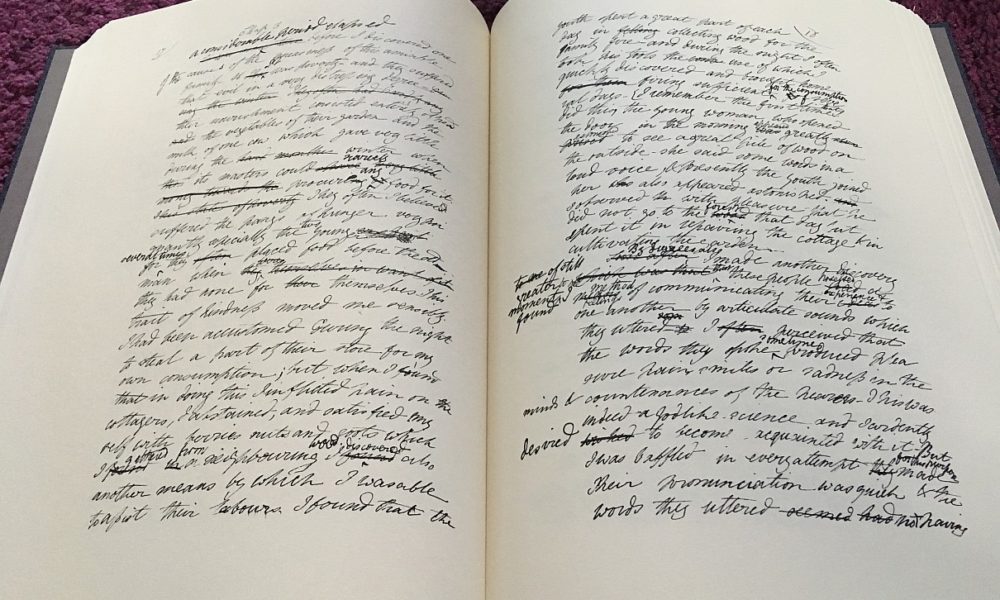 a considerable period elapsed
before I discovered one
of the causes of the uneasiness of this amiable
family it was poverty and they suffered
that evil in a very distressing degree
their nourishment consisted entirely
the vegetables of their garden and the
milk of one cow which gave very little
during the winter when
its masters could scarcely
procure any food for it
They often I believe
suffered the pangs of hunger very
poignantly especially the two young
several times
for they often placed food before the old
man when they
they had none for themselves. This
trait of kindness moved me sensibly
I had been accustomed during the night
to steal a part of their store for my
own consumption; but when I found
that in doing this I inflicted pain on the
cottagers, I abstained, and satisfied my
self with berries nuts and roots which
I gathered from a neighbouring wood I discovered also
another means by which I was able
to assist their labours. I found that the
18
youth spent a great part of each
day in collecting wood for the
family fire and during the night I often
took his tools the use of which I
quickly discovered and brought home
firing sufficient for the consumption
I remember the first time I
did this the young woman who opened
the door in the morning was greatly
astonished to see a great pile of wood on
the outside. she said some words in a
loud voice & presently the youth joined
her who also appeared astonished and
I observed with pleasure that he
did not go to the forest that day but
spent it in repairing the cottage & in
cultivating the garden.
By degrees I made another discovery
to me of still
greater
moment I
found
these people
method of communicating their
one another by articulate sounds which
they uttered I perceived that
the words they spoke sometimes produced plea
sure pain smiles or sadness in the
minds & countenances of the hearers. This was
indeed a godlike science and I ardently
desired to become acquainted with it. But
I was baffled in every attempt I made
for this purpose
Their pronunciation was quick & the
words they uttered seemed had not having